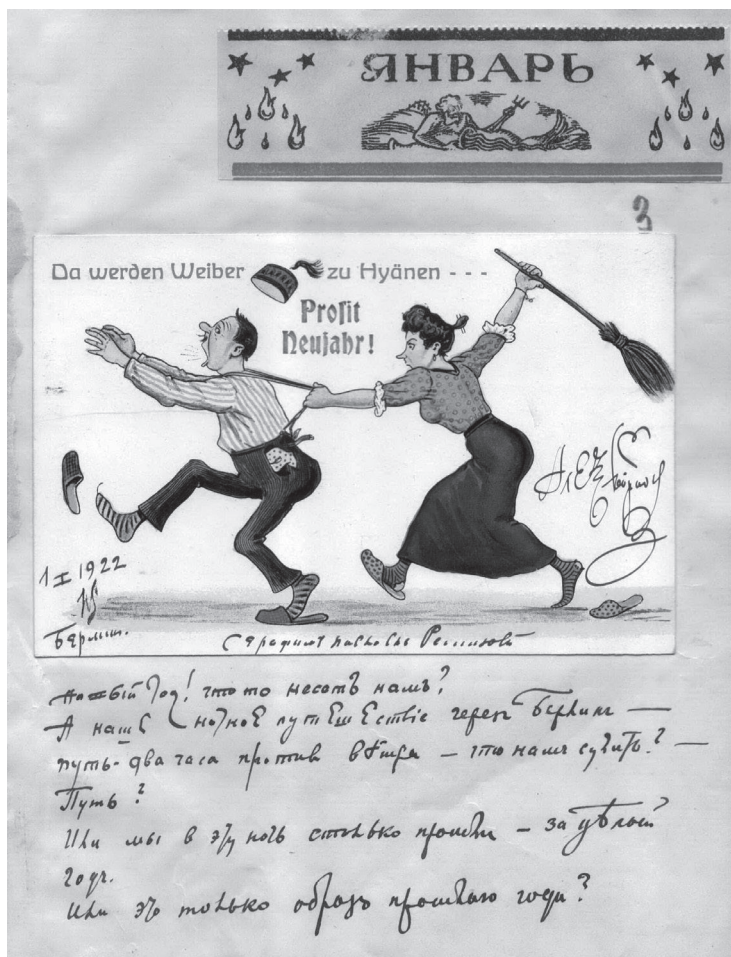 ЯНВАРЬ
3
Da werden Weiber zu Hyänen - - -
Prosit
Neujahr!
1 I 1922
Берлин.
Серафиме Павловне Ремизовой
Новый год! что то несетъ намъ?
А наше ночное путешествiе черезъ Берлинъ —
путь - два часа против вѣтра — что намъ сулитъ? —
Путь?
Или мы в эту ночь столько прошли — за цѣлый
годъ.
Или это только образъ прошлаго года?